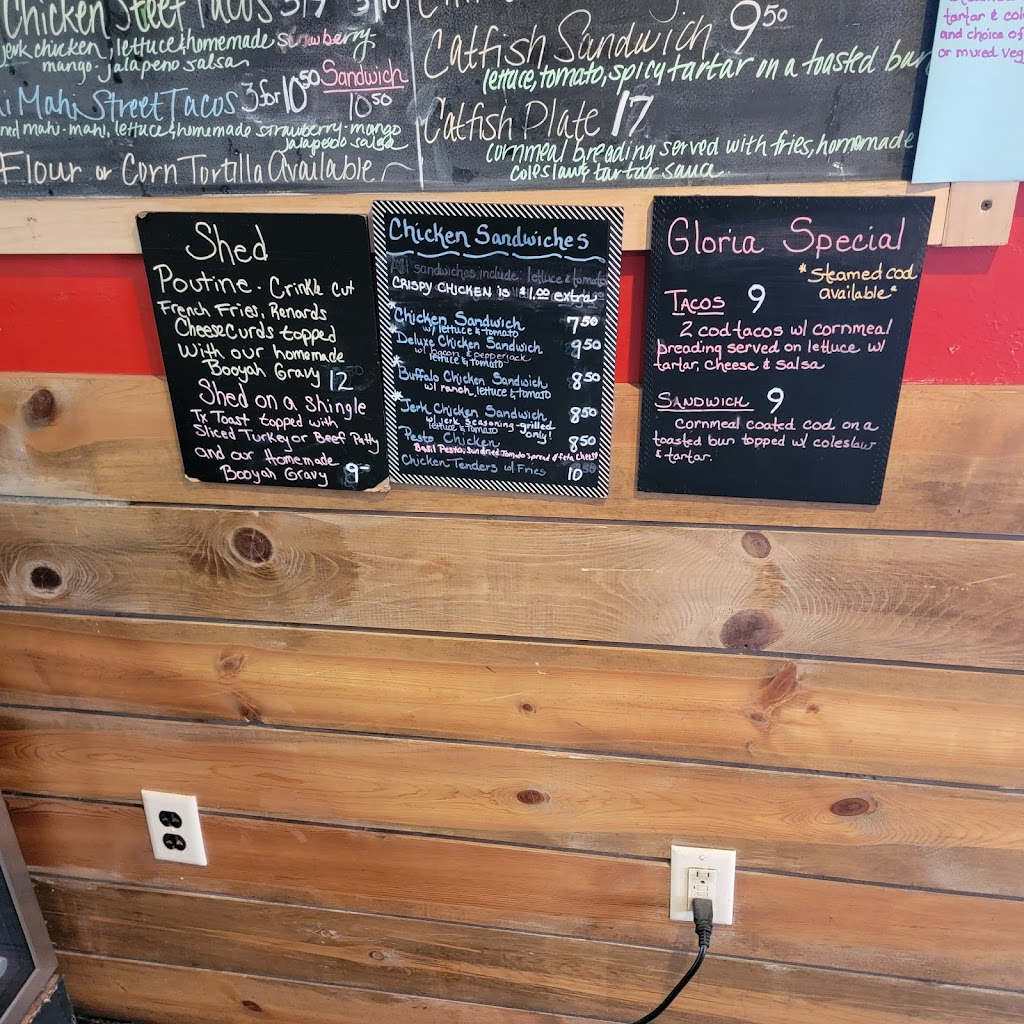 Chicken Street Tacos
jerk chicken, lettuce & homemade strawberry-
mango-jalapeno salsa
Mahi Street Tacos 3 for 10 50
mahi-mahi, lettuce & homemade strawberry-mango
jalapeno salsa
Sandwich
10 50
Flour or Corn Tortilla Available
Catfish Sandwich 9 50
lettuce, tomato, spicy tartar on a toasted bun
Catfish Plate 17
cornmeal breading served with fries, homemade
coleslaw & tartar sauce
tartar &
and choice of
or mixed
Shed
Poutine - Crinkle cut
French Fries, Renards
Cheese Curds topped
with our homemade
Booyah Gravy 12
Shed on a Shingle
Tx Toast topped with
Sliced Turkey or Beef Patty
and our Homemade
Booyah Gravy 9
Chicken Sandwiches
All sandwiches include: lettuce & tomato
CRISPY CHICKEN is $1.00 extra
*Chicken Sandwich 7 50
w/ lettuce & tomato
*Deluxe Chicken Sandwich 9 50
w/ bacon & pepperjack
lettuce & tomato
*Buffalo Chicken Sandwich 8 50
w/ ranch, lettuce & tomato
*Jerk Chicken Sandwich 8 50
w/ jerk seasoning-grilled
lettuce & tomato only!
Pesto Chicken 8 50
Basil Pesto, sundried tomato spread & feta cheese
Chicken Tenders w/ Fries 10
Gloria Special
*Steamed cod
available*
TACOS 9
2 cod tacos w/ cornmeal
breading served on lettuce w/
tartar, cheese & salsa
SANDWICH 9
Cornmeal coated cod on a
toasted bun topped w/ coleslaw
& tartar.